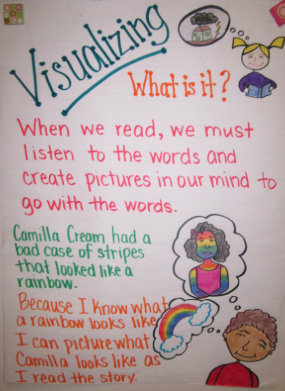 Visualizing
What is it?
When we read, we must
listen to the words and
create pictures in our mind to
go with the words.
Camilla Cream had a
bad case of stripes
that looked like a
rainbow.
Because I know what
a rainbow looks like
I can picture what
Camilla looks like as
I read the story.